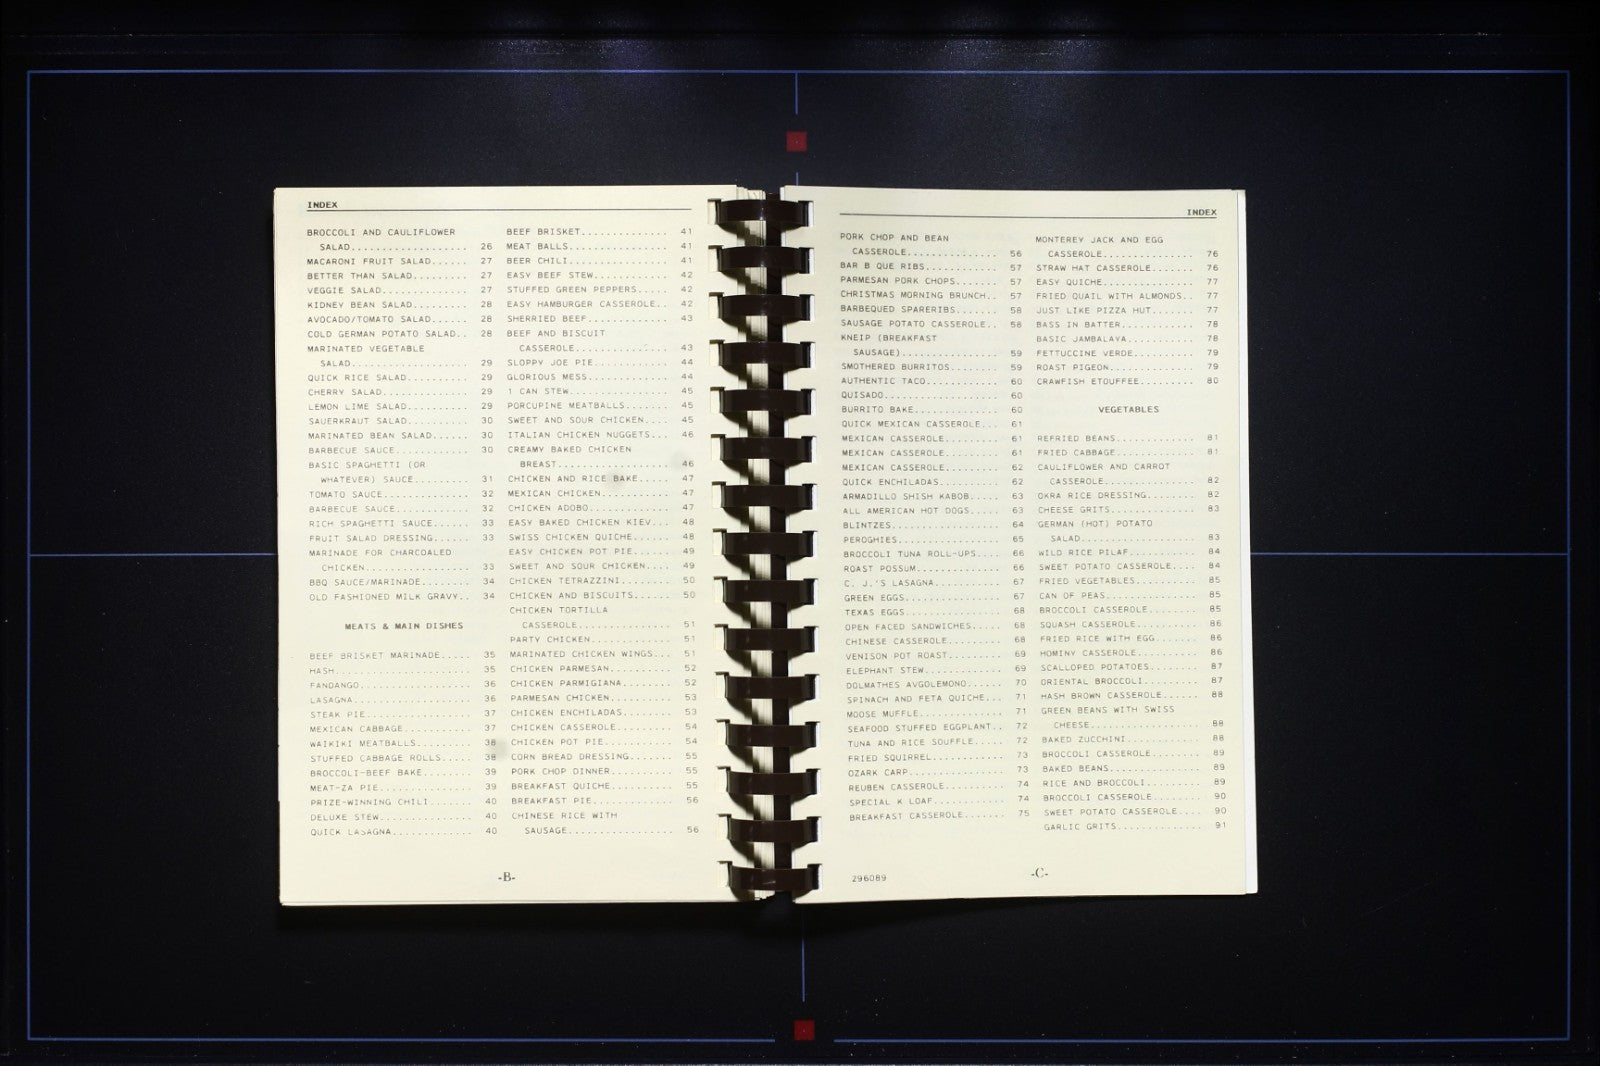 INDEX
BROCCOLI AND CAULIFLOWER
SALAD................... 26
MACARONI FRUIT SALAD...... 27
BETTER THAN SALAD......... 27
VEGGIE SALAD.............. 27
KIDNEY BEAN SALAD......... 28
AVOCADO/TOMATO SALAD...... 28
COLD GERMAN POTATO SALAD.. 28
MARINATED VEGETABLE
SALAD................... 29
QUICK RICE SALAD.......... 29
CHERRY SALAD.............. 29
LEMON LIME SALAD.......... 29
SAUERKRAUT SALAD.......... 30
MARINATED BEAN SALAD...... 30
BARBECUE SAUCE............ 30
BASIC SPAGHETTI (OR
WHATEVER) SAUCE......... 31
TOMATO SAUCE.............. 32
BARBECUE SAUCE............ 32
RICH SPAGHETTI SAUCE...... 33
FRUIT SALAD DRESSING...... 33
MARINADE FOR CHARCOALED
CHICKEN................. 33
BBQ SAUCE/MARINADE........ 34
OLD FASHIONED MILK GRAVY.. 34
MEATS & MAIN DISHES
BEEF BRISKET MARINADE..... 35
HASH...................... 35
FANDANGO.................. 36
LASAGNA................... 36
STEAK PIE................. 37
MEXICAN CABBAGE........... 37
WAIKIKI MEATBALLS......... 38
STUFFED CABBAGE ROLLS..... 38
BROCCOLI-BEEF BAKE........ 39
MEAT-ZA PIE............... 39
PRIZE-WINNING CHILI....... 40
DELUXE STEW............... 40
QUICK LASAGNA............. 40
BEEF BRISKET.............. 41
MEAT BALLS................ 41
BEER CHILI................ 41
EASY BEEF STEW............ 42
STUFFED GREEN PEPPERS..... 42
EASY HAMBURGER CASSEROLE.. 42
SHERRIED BEEF............. 43
BEEF AND BISCUIT
CASSEROLE............... 43
SLOPPY JOE PIE............ 44
GLORIOUS MESS............. 44
1 CAN STEW................ 45
PORCUPINE MEATBALLS....... 45
SWEET AND SOUR CHICKEN.... 45
ITALIAN CHICKEN NUGGETS... 46
CREAMY BAKED CHICKEN
BREAST.................. 46
CHICKEN AND RICE BAKE..... 47
MEXICAN CHICKEN........... 47
CHICKEN ADOBO............. 47
EASY BAKED CHICKEN KIEV... 48
SWISS CHICKEN QUICHE...... 48
EASY CHICKEN POT PIE...... 49
SWEET AND SOUR CHICKEN.... 49
CHICKEN TETRAZZINI........ 50
CHICKEN AND BISCUITS...... 50
CHICKEN TORTILLA
CASSEROLE............... 51
PARTY CHICKEN............. 51
MARINATED CHICKEN WINGS... 51
CHICKEN PARMESAN.......... 52
CHICKEN PARMIGIANA........ 52
PARMESAN CHICKEN.......... 53
CHICKEN ENCHILADAS........ 53
CHICKEN CASSEROLE......... 54
CHICKEN POT PIE........... 54
CORN BREAD DRESSING....... 55
PORK CHOP DINNER.......... 55
BREAKFAST QUICHE.......... 55
BREAKFAST PIE............. 56
CHINESE RICE WITH
SAUSAGE................. 56
-B-
INDEX
PORK CHOP AND BEAN
CASSEROLE............... 56
BAR B QUE RIBS............ 57
PARMESAN PORK CHOPS....... 57
CHRISTMAS MORNING BRUNCH.. 57
BARBEQUED SPARERIBS....... 58
SAUSAGE POTATO CASSEROLE.. 58
KNEIP (BREAKFAST
SAUSAGE)................ 59
SMOTHERED BURRITOS........ 59
AUTHENTIC TACO............ 60
QUISADO................... 60
BURRITO BAKE.............. 60
QUICK MEXICAN CASSEROLE... 61
MEXICAN CASSEROLE......... 61
MEXICAN CASSEROLE......... 61
MEXICAN CASSEROLE......... 62
QUICK ENCHILADAS.......... 62
ARMADILLO SHISH KABOB..... 63
ALL AMERICAN HOT DOGS..... 63
BLINTZES.................. 64
PEROGHIES................. 65
BROCCOLI TUNA ROLL-UPS.... 66
ROAST POSSUM.............. 66
C. J.'S LASAGNA........... 67
GREEN EGGS................ 67
TEXAS EGGS................ 68
OPEN FACED SANDWICHES..... 68
CHINESE CASSEROLE......... 68
VENISON POT ROAST......... 69
ELEPHANT STEW............. 69
DOLMATHES AVGOLEMONO...... 70
SPINACH AND FETA QUICHE... 71
MOOSE MUFFLE.............. 71
SEAFOOD STUFFED EGGPLANT.. 72
TUNA AND RICE SOUFFLE..... 72
FRIED SQUIRREL............ 73
OZARK CARP................ 73
REUBEN CASSEROLE.......... 74
SPECIAL K LOAF............ 74
BREAKFAST CASSEROLE....... 75
MONTEREY JACK AND EGG
CASSEROLE............... 76
STRAW HAT CASSEROLE....... 76
EASY QUICHE............... 77
FRIED QUAIL WITH ALMONDS.. 77
JUST LIKE PIZZA HUT....... 77
BASS IN BATTER............ 78
BASIC JAMBALAYA........... 78
FETTUCCINE VERDE.......... 79
ROAST PIGEON.............. 79
CRAWFISH ETOUFFEE......... 80
VEGETABLES
REFRIED BEANS............. 81
FRIED CABBAGE............. 81
CAULIFLOWER AND CARROT
CASSEROLE............... 82
OKRA RICE DRESSING........ 82
CHEESE GRITS.............. 83
GERMAN (HOT) POTATO
SALAD................... 83
WILD RICE PILAF........... 84
SWEET POTATO CASSEROLE.... 84
FRIED VEGETABLES.......... 85
CAN OF PEAS............... 85
BROCCOLI CASSEROLE........ 85
SQUASH CASSEROLE.......... 86
FRIED RICE WITH EGG....... 86
HOMINY CASSEROLE.......... 86
SCALLOPED POTATOES........ 87
ORIENTAL BROCCOLI......... 87
HASH BROWN CASSEROLE...... 88
GREEN BEANS WITH SWISS
CHEESE.................. 88
BAKED ZUCCHINI............ 88
BROCCOLI CASSEROLE........ 89
BAKED BEANS............... 89
RICE AND BROCCOLI......... 89
BROCCOLI CASSEROLE........ 90
SWEET POTATO CASSEROLE.... 90
GARLIC GRITS.............. 91
296089
-C-